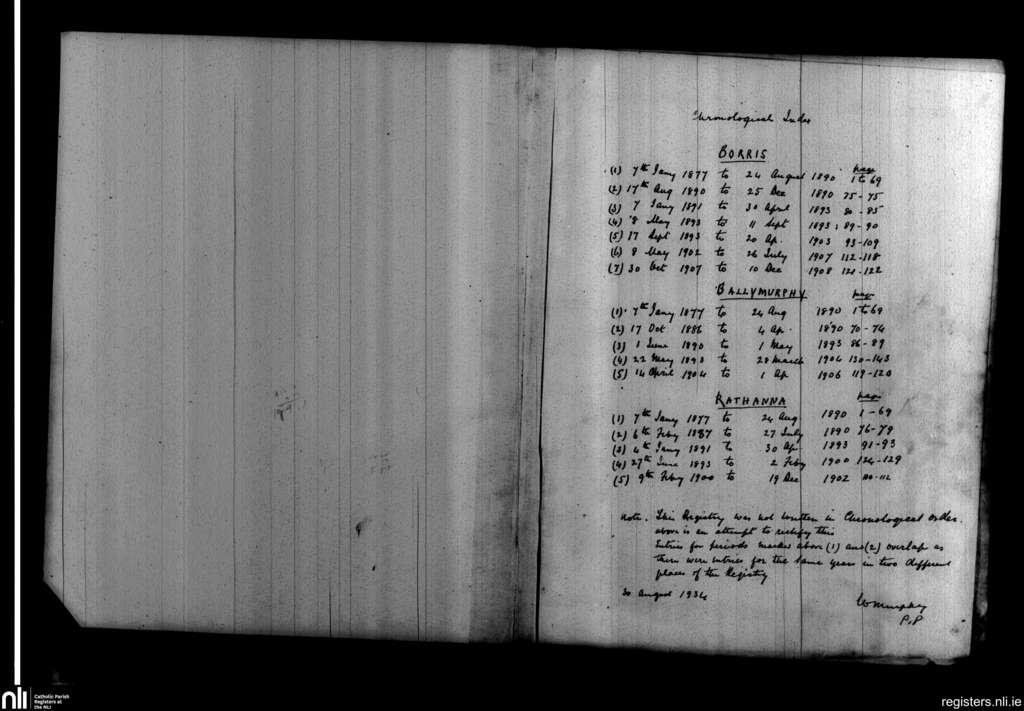 Chronological Index
BORRIS
page
(1) 7th Jany 1877 to 24 August 1890 1 to 69
(2) 17th Aug 1890 to 25 Dec 1890 75-75
(3) 7 Jany 1891 to 30 April 1893 80-85
(4) 8 May 1893 to 11 Sept 1893: 89-90
(5) 17 Sept 1893 to 20 Ap. 1903 93-109
(6) 8 May 1902 to 26 July 1907 112-118
(7) 30 Oct 1907 to 10 Dec 1908 121-122
BALLYMURPHY
page
(1) 7th Jany 1877 to 24 Aug 1890 1 to 69
(2) 17 Oct 1886 to 4 Ap. 1890 70-74
(3) 1 June 1890 to 1 May 1893 86-89
(4) 22 May 1893 to 28 March 1904 130-143
(5) 14 April 1904 to 1 Ap 1906 119-120
RATHANNA
page
(1) 7th Jany 1877 to 24 Aug 1890 1-69
(2) 6th Feby 1887 to 27 July 1890 76-79
(3) 4th Jany 1891 to 30 Ap. 1893 91-93
(4) 27th June 1893 to 2 Feby 1900 124-129
(5) 9th Feby 1900 to 19 Dec 1902 110-112
note. This Registry was not written in Chronological order.
above is an attempt to rectify this
Entries for periods marked above (1) and (2) overlap as
there were entries for the same years in two different
places of the Registry
30 August 1934
W Murphy
P.P
nli
Catholic Parish
Registers at
the NLI
registers.nli.ie